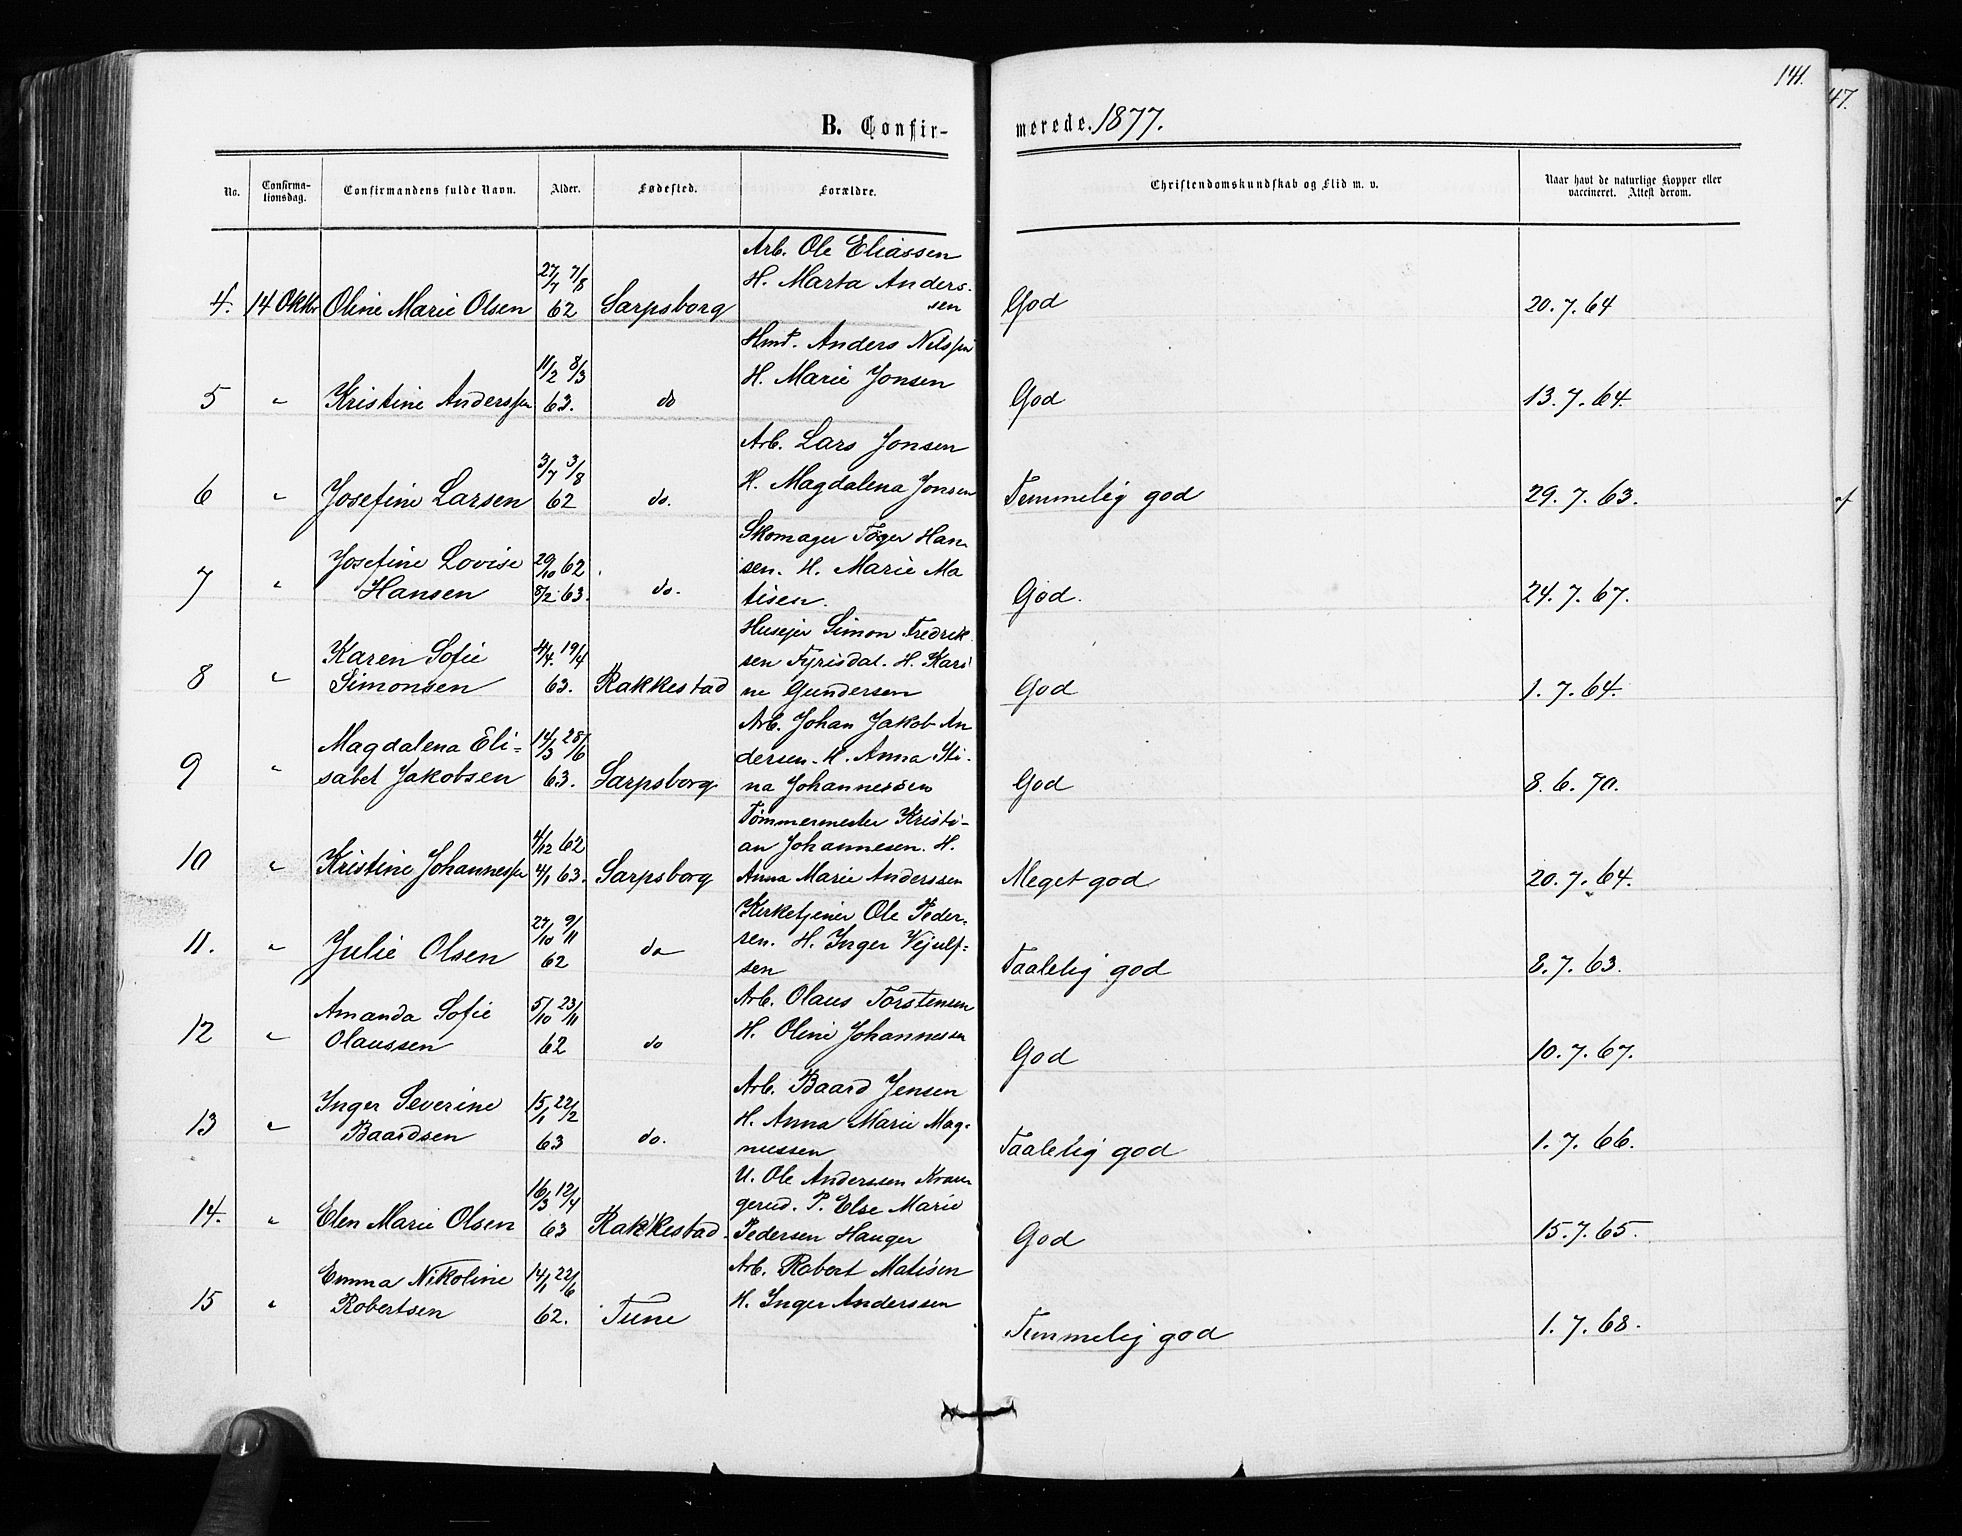 141.
47.
B. Confirmerede. 1877.
No. Confirmationsdag. Confirmandens fulde Navn. Alder. Fødested. Forældre. Christendomskundskab og Flid m. v. Naar havt de naturlige Kopper eller vaccineret. Attest derom.
Arb. Ole Eliassen
27/7 7/8 H. Marta Anders-
4. 14 Oktbr Oline Marie Olsen 62 Sarpsborg sen God 20.7.64
Hmd. Anders Nilssen
11/2 8/3 H. Marie Jonsen
5 " Kristine Anderssen 63. do God 13.7.64.
Arb. Lars Jonsen
3/7 3/8
6 " Josefine Larsen 62 do. H. Magdalena Jonsen Temmelig god 29.7.63.
Skomager Tøger Han-
Josefine Lovise 29/10 62 sen. H. Marie Ma
7 " Hansen 8/2 63. do. tisen. God. 24.7.67.
Husejer Simon Fredrik-
Karen Sofie 4/4. 19/4 sen Fyrisdal. H. Kari
8 " Simonsen 63. Rakkestad ne Gundersen God 1.7.64.
Arb. Johan Jakob An
Magdalena Eli- 14/3 28/6 dersen. H. Anna Sti-
9 " sabet Jakobsen 63. Sarpsborg na Johannessen God 8.6.70.
Tømmermester Kristi-
4/12 62 an Johannesen. H.
10 " Kristine Johannessen 4/1 63. Sarpsborg Anna Marie Anderssen Meget god 20.7.64.
Kirketjener Ole Peder-
27/10 9/11 sen. H. Inger Vejulf-
11. " Julie Olsen 62 do sen Taalelig god 8.7.63.
Amanda Sofie 5/10 23/11 Arb. Olaus Torstensen
12 " Olaussen 62 do H. Oline Johannessen God 10.7.67.
Arb. Baard Jensen
Inger Severine 15/1 22/2 H. Anna Marie Mag-
13 " Baardsen 63 do. nussen Taalelig god 1.7.66.
U. Ole Anderssen Kraug-
16/3 12/4 gerud. P. Else Marie
14. " Elen Marie Olsen 63 Rakkestad. Pedersen Hauger God 15.7.65.
Emma Nikoline 14/1 22/6 Arb. Robert Matisen
15 " Robertsen 62. Tune H. Inger Anderssen Temmelig god 1.7.68.